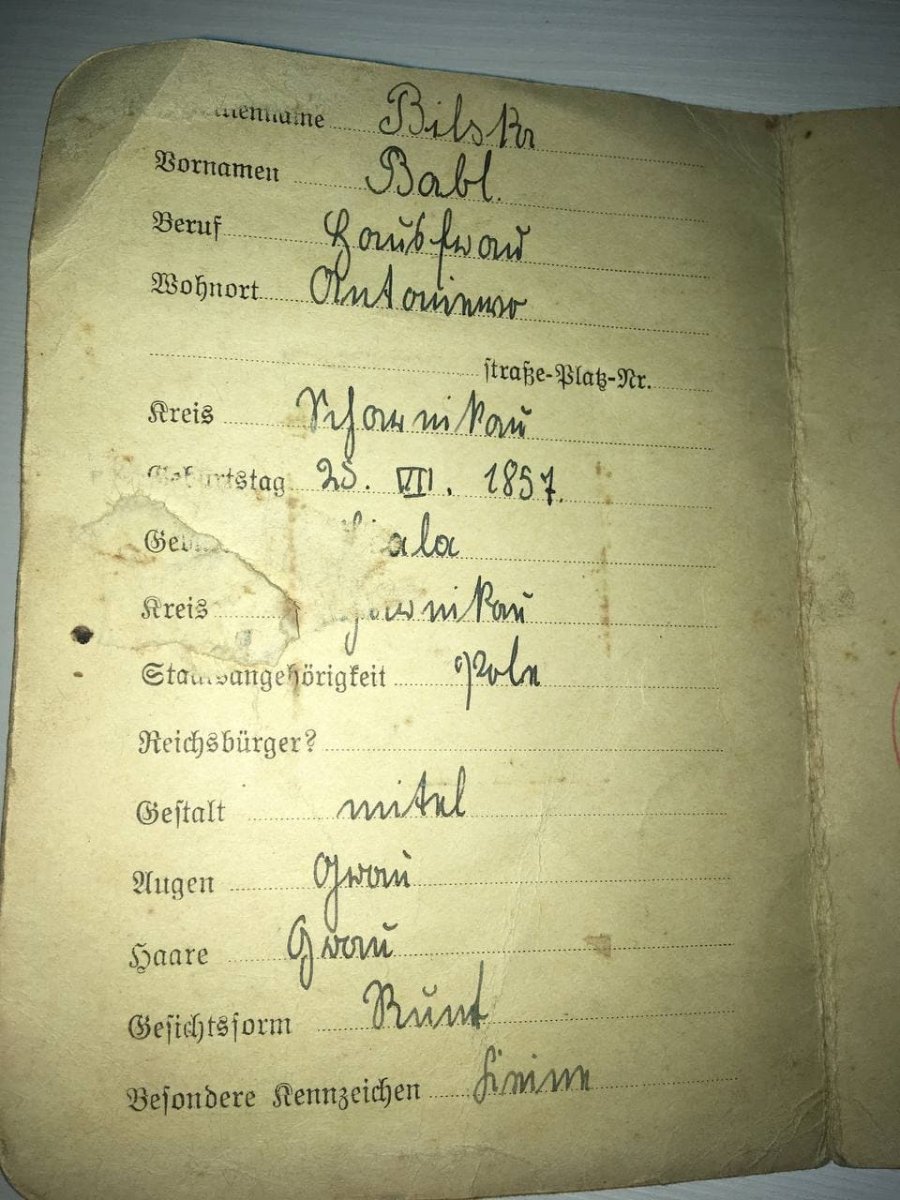 Bilska
Vornamen Babl.
Beruf Hausfrau
Wohnort Antoniewo
straße-Platz-Nr.
Kreis Scharnikau
Geburtstag 25. VII. 1857.
ala
Kreis
Staatsangehörigkeit Pole
Reichsbürger?
Gestalt mitel
Augen Grau
Haare Grau
Gesichtsform Runt
Besondere Kennzeichen Keine